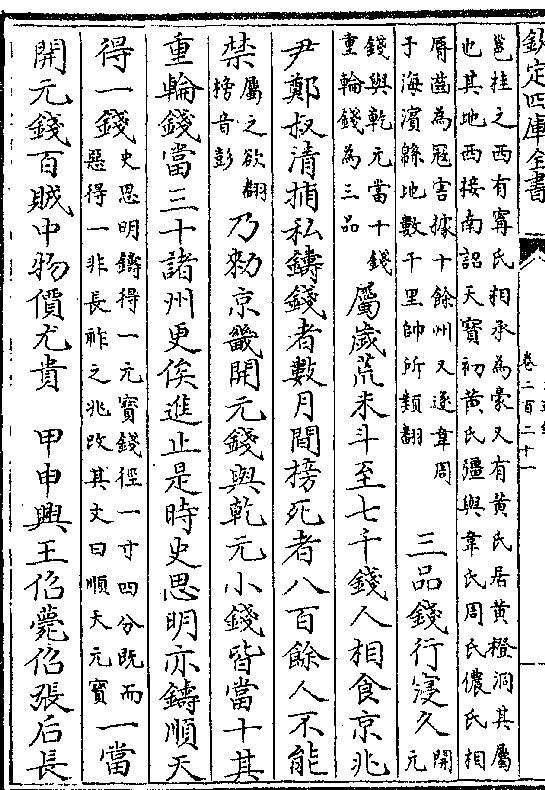 欽定四庫全書
卷二百二十一
邕桂之西有甯氏相承為豪又有黄氏居黄橙洞其屬
也其地西接南詔天寶初黄氏彊與韋氏周氏儂氏相
脣齒為寇害據十餘州又逐韋周
于海濱緜地數千里帥所類翻
三品錢行寖久
開元
錢與乾元當十錢
重輪錢為三品
屬歲荒米斗至七千錢人相食京兆
尹鄭叔清捕私鑄錢者數月間搒死者八百餘人不能
禁
屬之欲翻
搒音彭
乃勑京畿開元錢與乾元小錢皆當十其
重輪錢當三十諸州更俟進止是時史思明亦鑄順天
得一錢
史思明鑄得一元寶錢徑一寸四分既而
惡得一非長祚之兆改其文曰順天元寶
一當
開元錢百賊中物價尤貴　甲申興王佋薨佋張后長